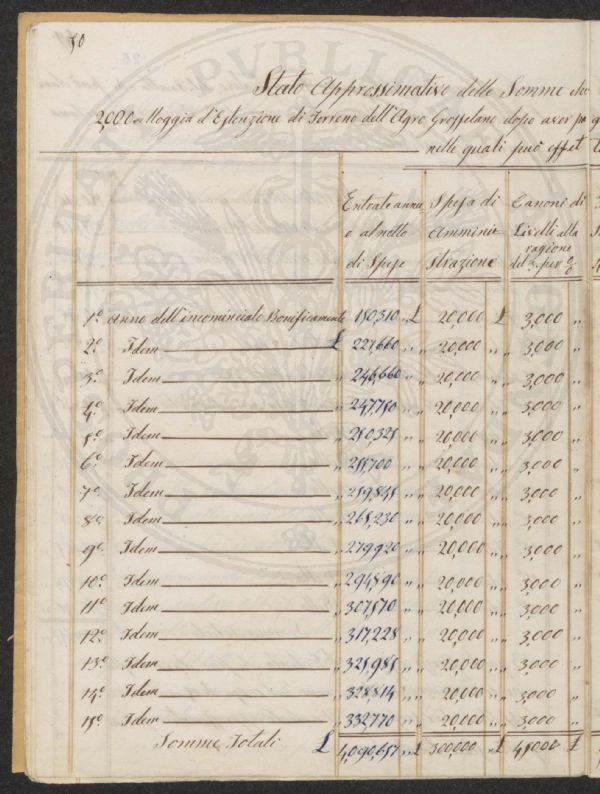 50
Stato Approssimativo delle Somme che
2000 Moggia d'Estenzione di Terreno dell'Agro Grossetano dopo aver
nelle quali può effet
Entrate annu
e al netto
di Spese
Spesa di
Amminis
trazione
Canoni di
Livelli alla
ragione
del 3 per %
1º Anno dell'incominciato Bonificamento 150,310 „ £ 20,000 £ 3,000 „
2º Idem £ 227,660 „ „ 20,000 „ „ 3,000 „
3º Idem „ 246,660 „ „ 20,000 „ „ 3,000 „
4º Idem „ 247,750 „ „ 20,000 „ „ 3,000 „
5º Idem „ 250,325 „ „ 20,000 „ „ 3,000 „
6º Idem „ 255,700 „ „ 20,000 „ „ 3,000 „
7º Idem „ 259,845 „ „ 20,000 „ „ 3,000 „
8º Idem „ 265,230 „ „ 20,000 „ „ 3,000 „
9º Idem „ 279,920 „ „ 20,000 „ „ 3,000 „
10º Idem „ 294,890 „ „ 20,000 „ „ 3,000 „
11º Idem „ 307,570 „ „ 20,000 „ „ 3,000 „
12º Idem „ 317,228 „ „ 20,000 „ „ 3,000 „
13º Idem „ 325,985 „ „ 20,000 „ „ 3,000 „
14º Idem „ 328,814 „ „ 20,000 „ „ 3,000 „
15º Idem „ 332,770 „ „ 20,000 „ „ 3,000 „
Somme Totali £ 4,090,657 „ £ 300,000 „ £ 45,000 £